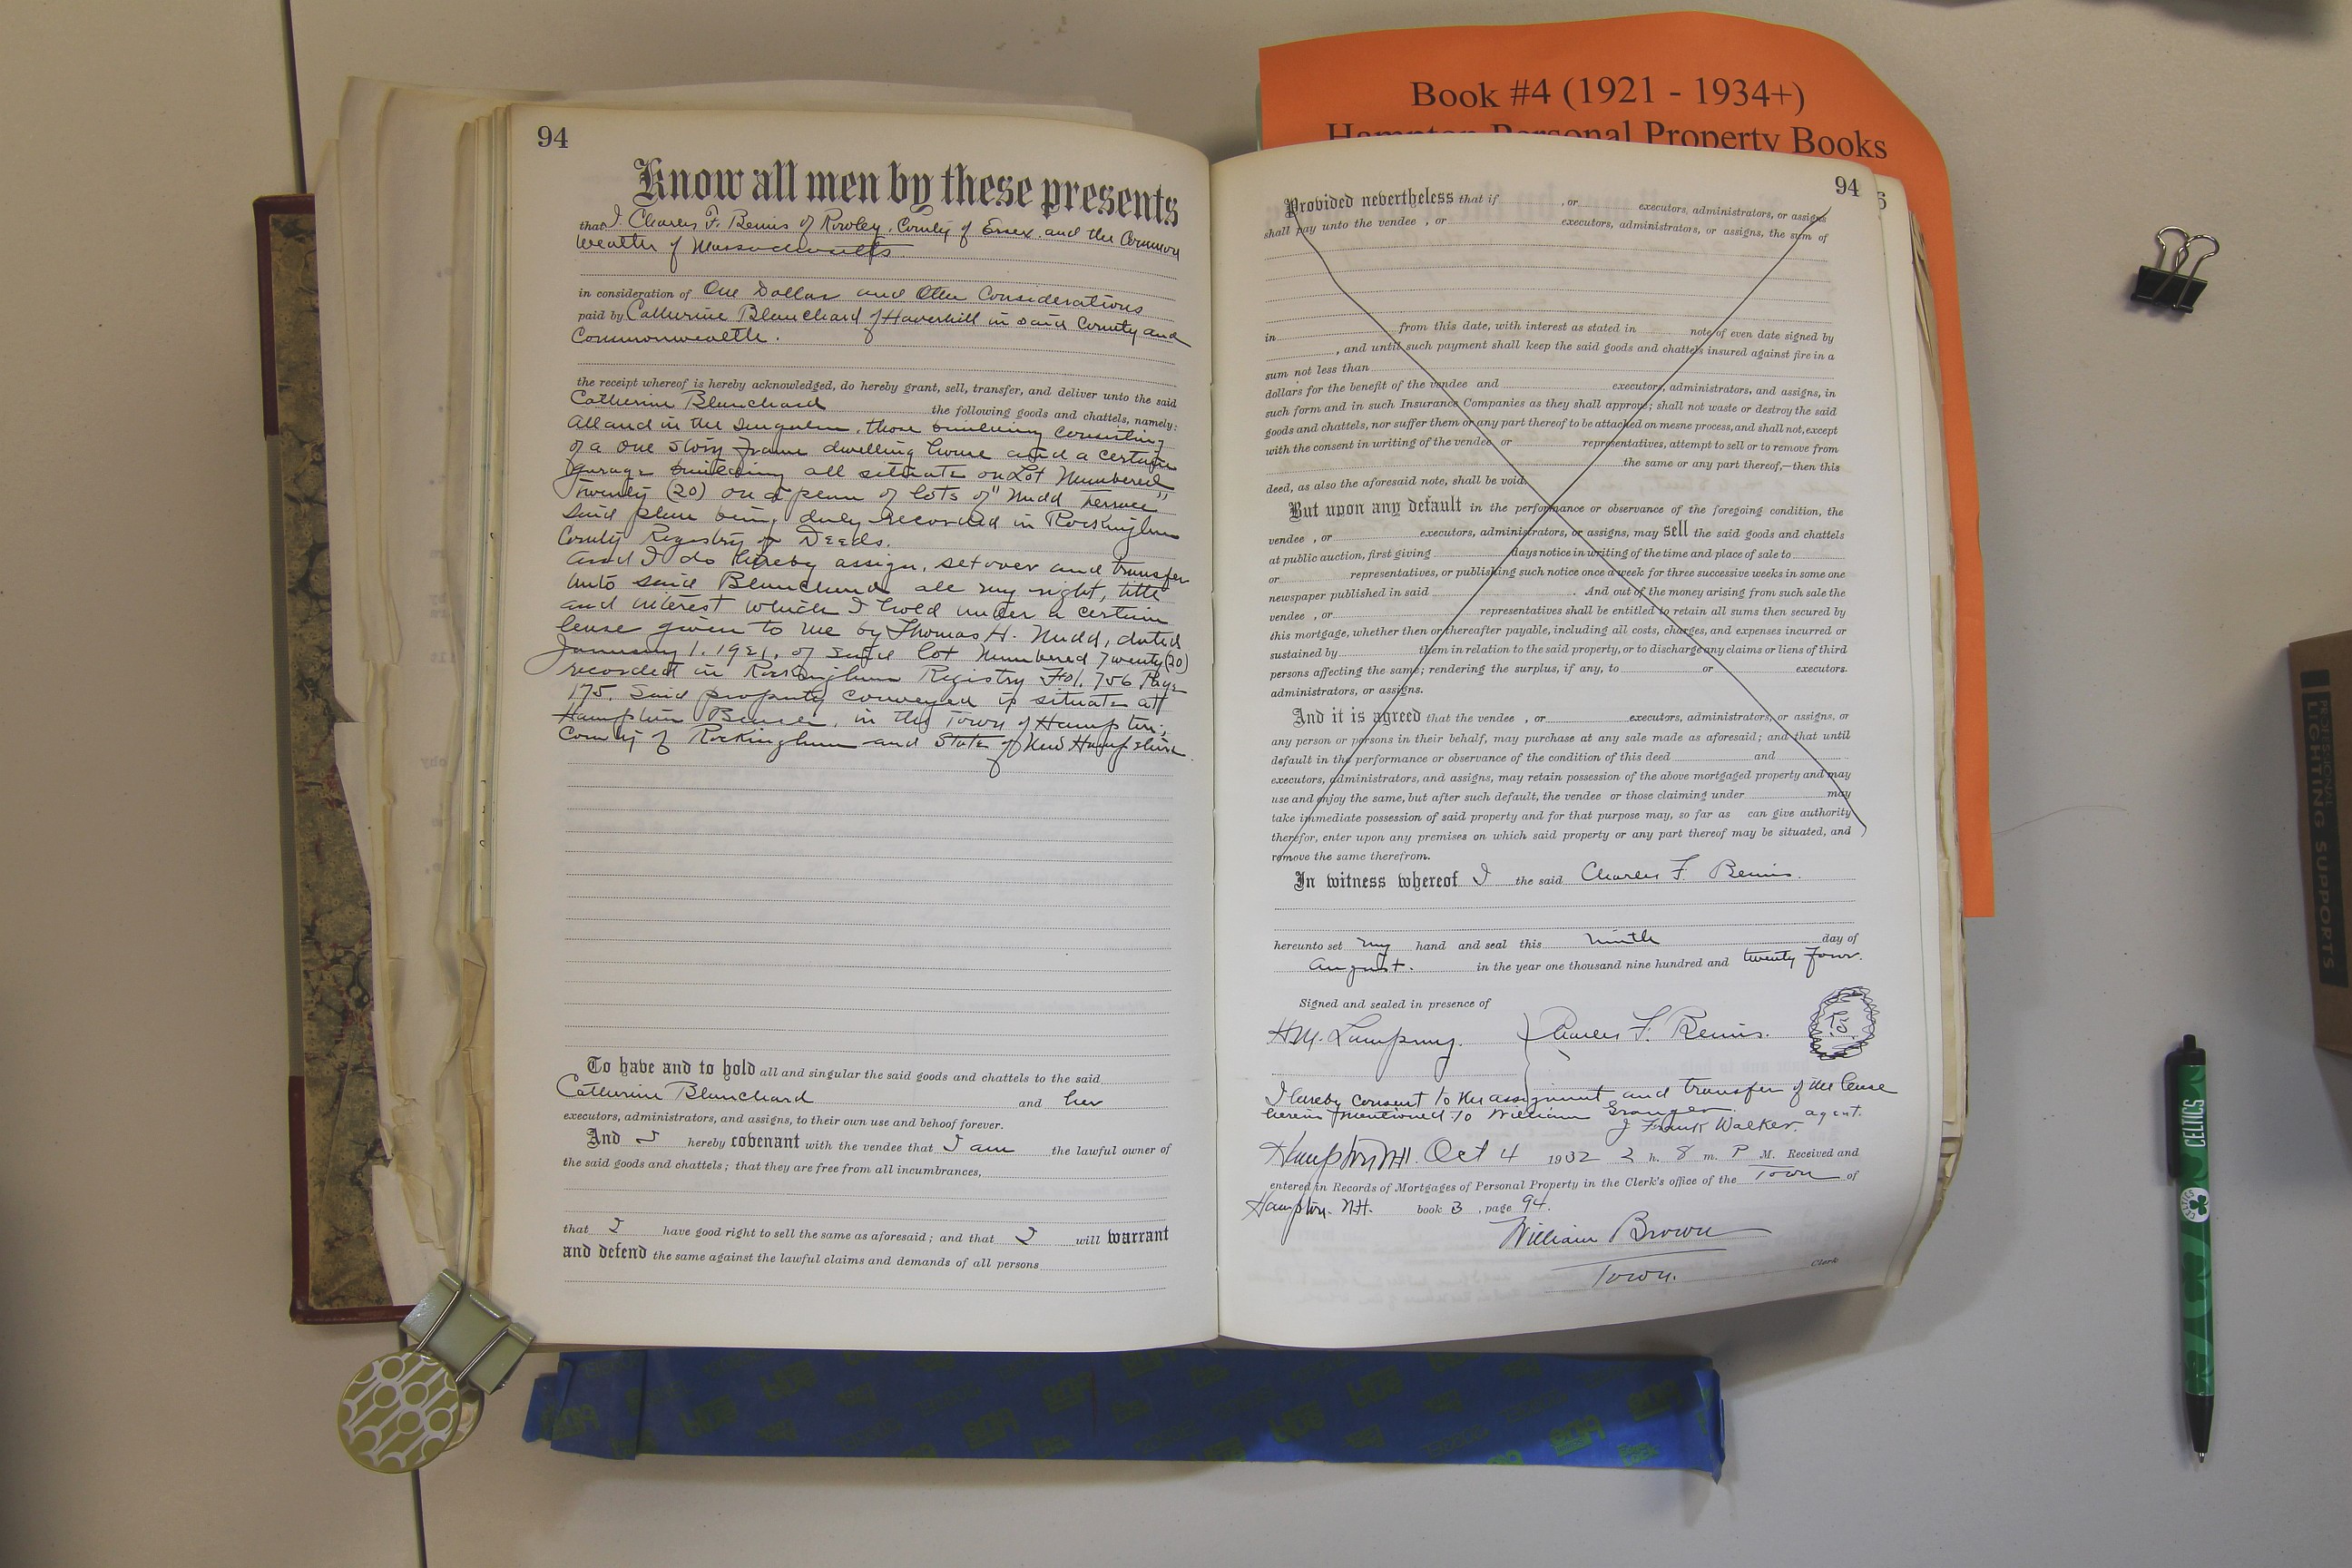 Book #4 (1921 - 1934+)
Hampton Personal Property Books
94
Know all men by these presents
that I Charles F. Bemis of Rowley, County of Essex, and the Common
wealth of Massachusetts.
in consideration of One Dollar and Other Considerations
paid by Catherine Blanchard of Haverhill in said County and
Commonwealth.
the receipt whereof is hereby acknowledged, do hereby grant, sell, transfer, and deliver unto the said
Catherine Blanchard the following goods and chattels, namely:
All and in the singular, those building consisting
of a one story frame dwelling house and a certain
garage building all situate on Lot Numbered
Twenty (20) on a plan of lots of "Nudd Terrace"
said plan being duly recorded in Rockingham
County Registry of Deeds.
and I do hereby assign, set over and transfer
unto said Blanchard all my right, title
and interest which I hold under a certain
lease given to me by Thomas H. Nudd, dated
January 1. 1921, of said lot Numbered Twenty (20)
recorded in Rockingham Registry Fol. 756 Page
175. Said property conveyed is situate at
Hampton Beach, in the Town of Hampton,
County of Rockingham and State of New Hampshire.
To have and to hold all and singular the said goods and chattels to the said
Catherine Blanchard and her
executors, administrators, and assigns, to their own use and behoof forever.
And I hereby covenant with the vendee that I am the lawful owner of
the said goods and chattels; that they are free from all incumbrances,
that I have good right to sell the same as aforesaid; and that I will warrant
and defend the same against the lawful claims and demands of all persons
94
Provided nevertheless that if , or executors, administrators, or assigns
shall pay unto the vendee , or executors, administrators, or assigns, the sum of
in from this date, with interest as stated in note of even date signed by
, and until such payment shall keep the said goods and chattels insured against fire in a
sum not less than
dollars for the benefit of the vendee and executors, administrators, and assigns, in
such form and in such Insurance Companies as they shall approve; shall not waste or destroy the said
goods and chattels, nor suffer them or any part thereof to be attached on mesne process, and shall not, except
with the consent in writing of the vendee or representatives, attempt to sell or to remove from
the same or any part thereof,—then this
deed, as also the aforesaid note, shall be void.
But upon any default in the performance or observance of the foregoing condition, the
vendee , or executors, administrators, or assigns, may sell the said goods and chattels
at public auction, first giving days notice in writing of the time and place of sale to
or representatives, or publishing such notice once a week for three successive weeks in some one
newspaper published in said . And out of the money arising from such sale the
vendee , or representatives shall be entitled to retain all sums then secured by
this mortgage, whether then or thereafter payable, including all costs, charges, and expenses incurred or
sustained by them in relation to the said property, or to discharge any claims or liens of third
persons affecting the same; rendering the surplus, if any, to or executors.
administrators, or assigns.
And it is agreed that the vendee , or executors, administrators, or assigns, or
any person or persons in their behalf, may purchase at any sale made as aforesaid; and that until
default in the performance or observance of the condition of this deed and
executors, administrators, and assigns, may retain possession of the above mortgaged property and may
use and enjoy the same, but after such default, the vendee or those claiming under may
take immediate possession of said property and for that purpose may, so far as can give authority
therefor, enter upon any premises on which said property or any part thereof may be situated, and
remove the same therefrom.
In witness whereof I the said Charles F. Bemis.
hereunto set my hand and seal this ninth day of
August. in the year one thousand nine hundred and twenty four.
Signed and sealed in presence of
H.M. Lamprey. Charles F. Bemis.
I hereby consent to the assignment and transfer of the lease
herein mentioned to William Granger.
J Frank Walker. agent.
Hampton NH. Oct 4 1932 2 h. 8 m. P M. Received and
entered in Records of Mortgages of Personal Property in the Clerk's office of the Town of
Hampton. N.H. book B , page 94.
William Brown
Town. Clerk
CELTICS
LIGHTING SUPPORTS